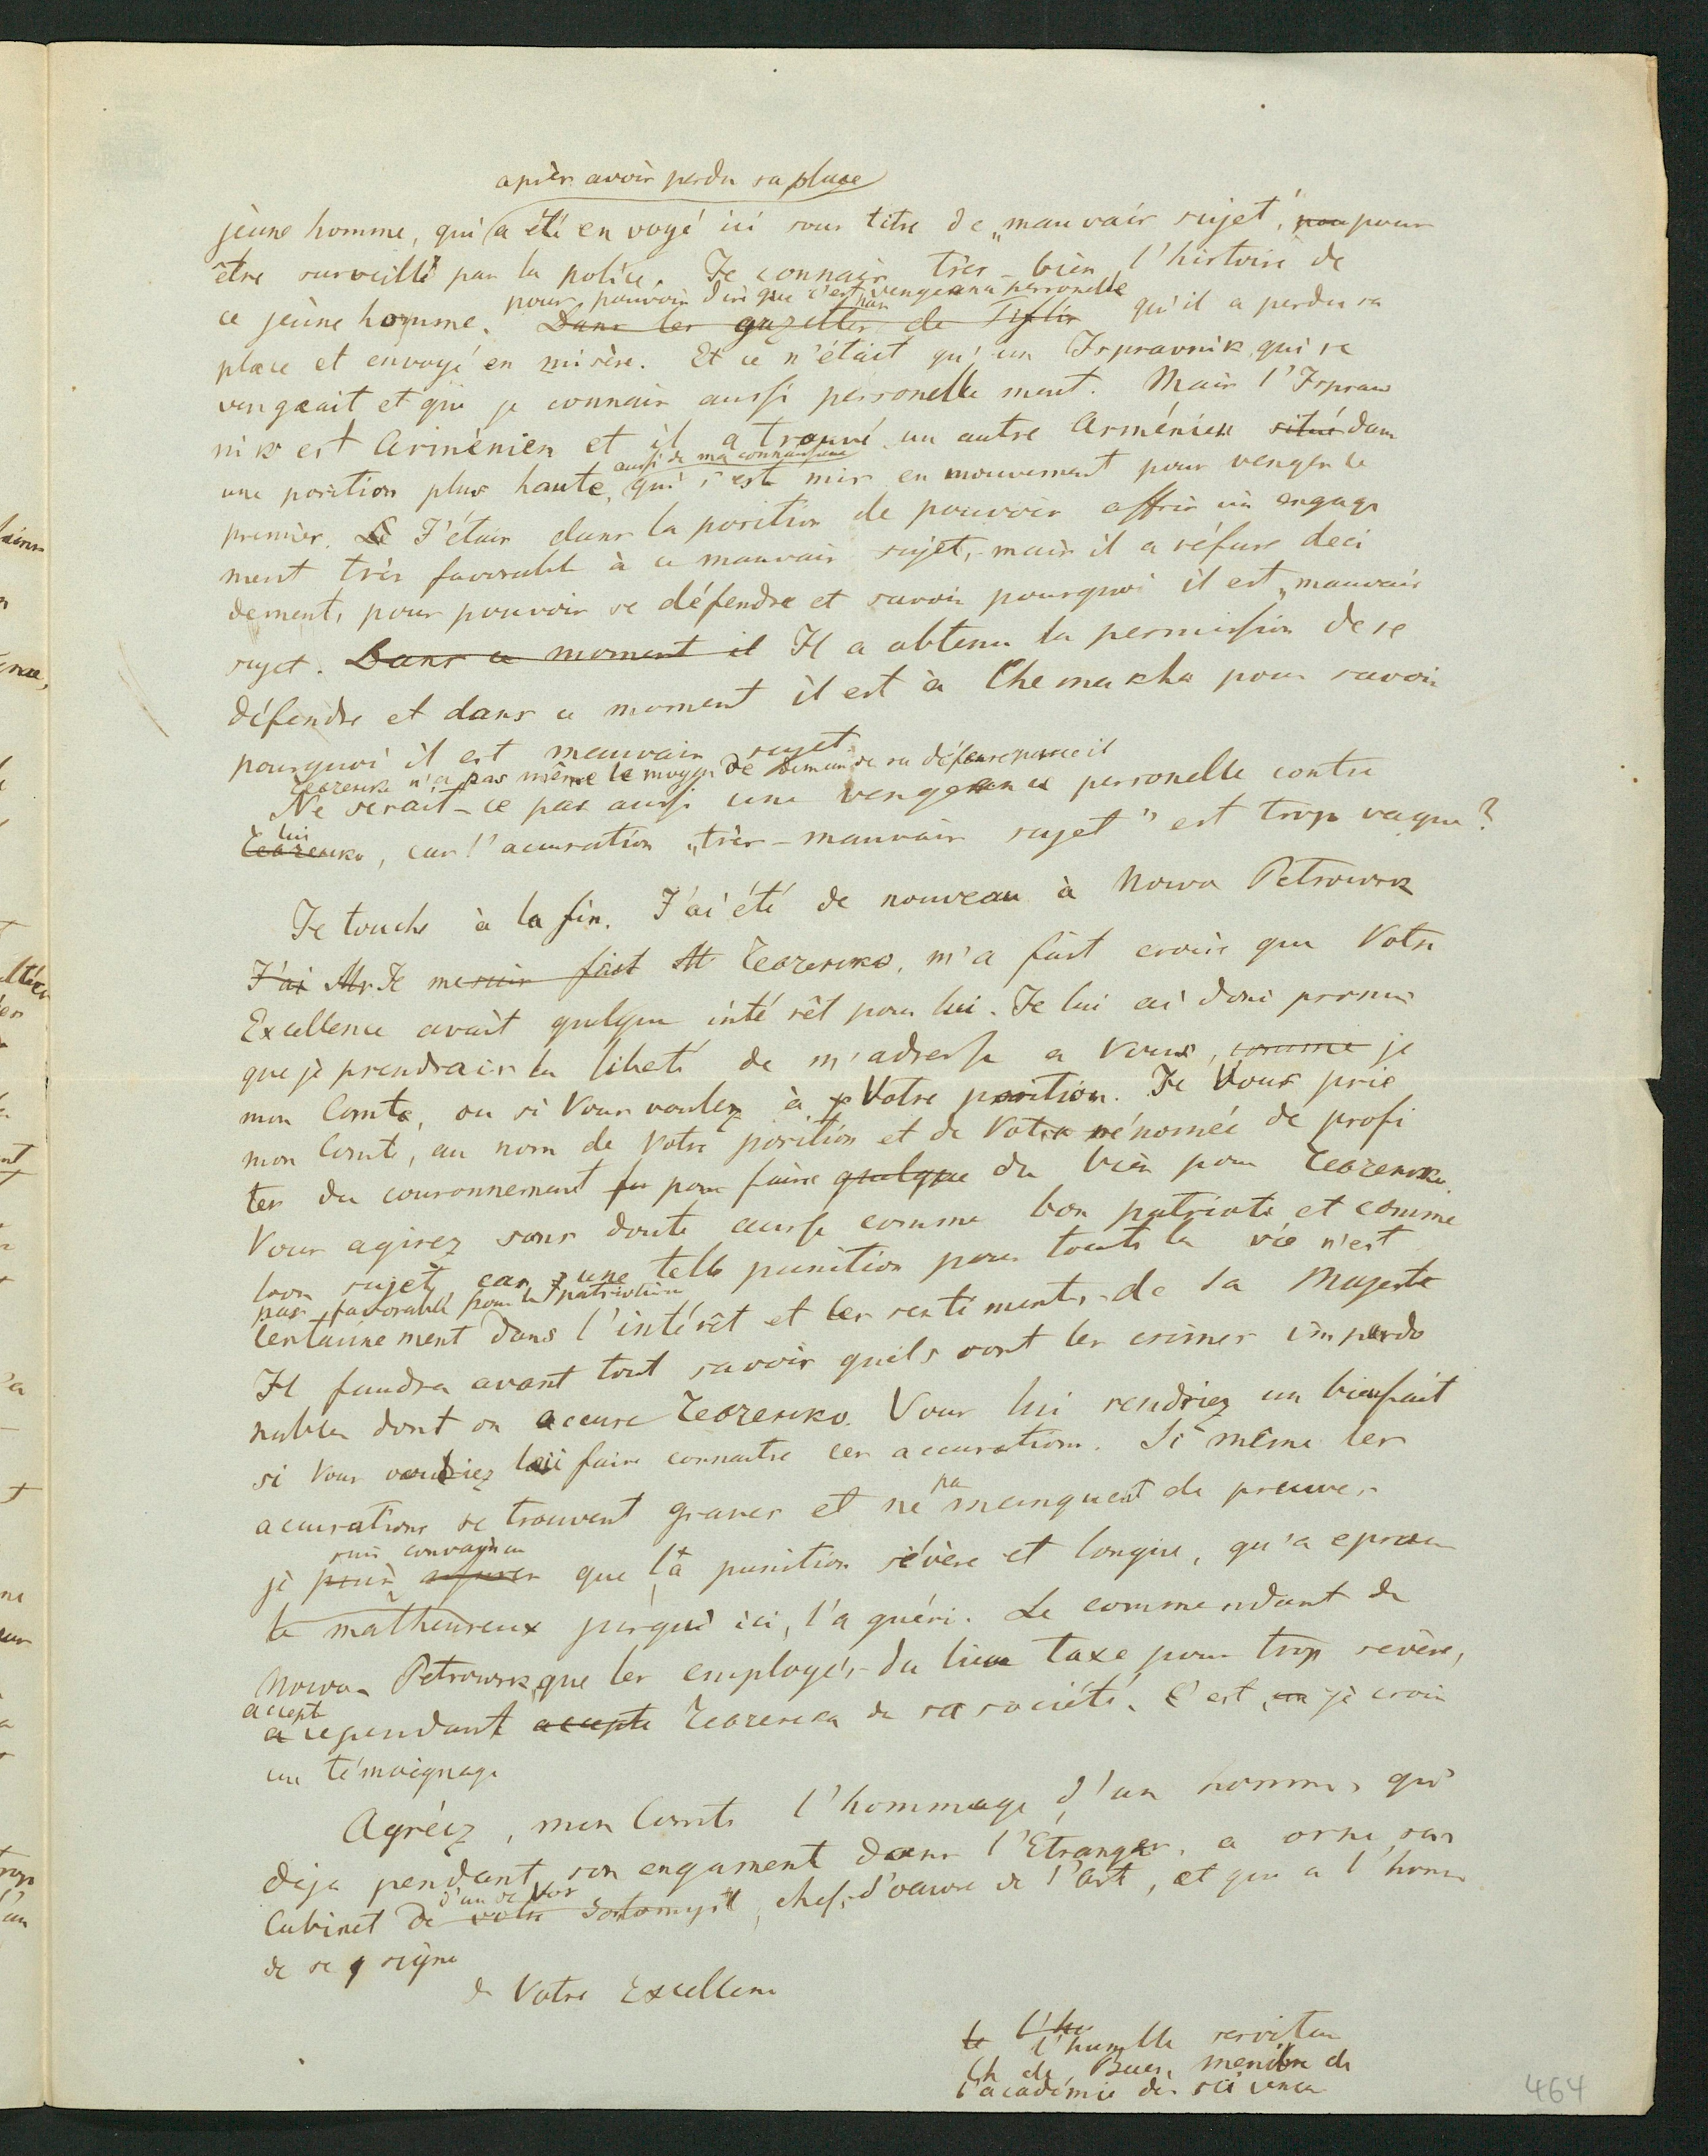 après avoir perdu sa place
jeune homme, qui a été envoyé ici sous titre de „mauvais sujet", pou pour
être surveillé par la police. Je connais très-bien l'histoire de
pour pouvoir dire que c'est par vengeance personelle
ce jeune homme. Dans les gazettes de Tiflis qu'il a perdu sa
place et envoyé en misère. Et ce n'était qu'un Ispravnik, qui se
vengeait et que je connais aussi personellement. Mais l'Isprav
nik est Arménien et il a trouvé un autre Arménien situé dans
aussi de ma connaissance
une position plus haute, qui s'est mis en mouvement pour venger le
premier. J'étais dans la position de pouvoir offrir un engage
ment très favorable à ce mauvais sujet, mais il a réfusé deci
dement, pour pouvoir se défendre et savoir pourquoi il est „mauvais
sujet. Dans ce moment il Il a obtenu la permission de se
défendre et dans ce moment il est à Chemakha pour savoir
pourquoi il est mauvais sujet.
n'a pas même le moyen de sa défense
Ne serait-ce pas aussi une vengeance personelle contre
lui
car l'accusation „très-mauvais sujet" est trop vague?
Je touche à la fin. J'ai été de nouveau à Nowo Petrowsk
J'ai Mr Je me suis fait m'a fait croire que Votre
Excellence avait quelque intérêt pour lui. Je lui ai donc promis
que je prendrais la liberté de m'adresse a Vous, comme je
mon Comte, ou si Vous voulez à Votre position. Je Vous prie
mon Comte, au nom de Votre position et de Votre rénomée de profi
ter du couronnement pour faire quelque du bien pour
Vous agirez sans doute aussi comme bon patriote et comme
bon sujet, car une telle punition pour toute la vie n'est
pas favorable pour le patriotisme
Certainement dans l'intérêt et les sentiments de Sa Majesté
Il faudra avant tout savoir quels sont les crimes impardo
nables dont on accuse Vous lui rendriez un bienfait
si Vous voudriez lui faire connaitre ces accusations. Si même les
accusations se trouvent graves et ne manquent de preuves
suis convaincu
je puis assurer que la punition sévère et longue, qu'a eprouvé
le malheureux jusqu'ici, l'a guéri. Le commendant de
Nowo-Petrowsk, que les employés du lieu taxe pour trop sevère,
accept
a cependant accepte de sa société. C'est je crois
un témoignage
Agréez, mon Comte l'hommage d'un homme, qui
deja pendant son engament dans l'Etranger, a orné son
d'un de Vos
Cabinet de votre chef-d'oeuvre de l'art, et qui a l'honn
de se signe
de Votre Excellence
le l'hu
l'humble serviteur
Ch de Baer, membre de
l'académie des sciences
464